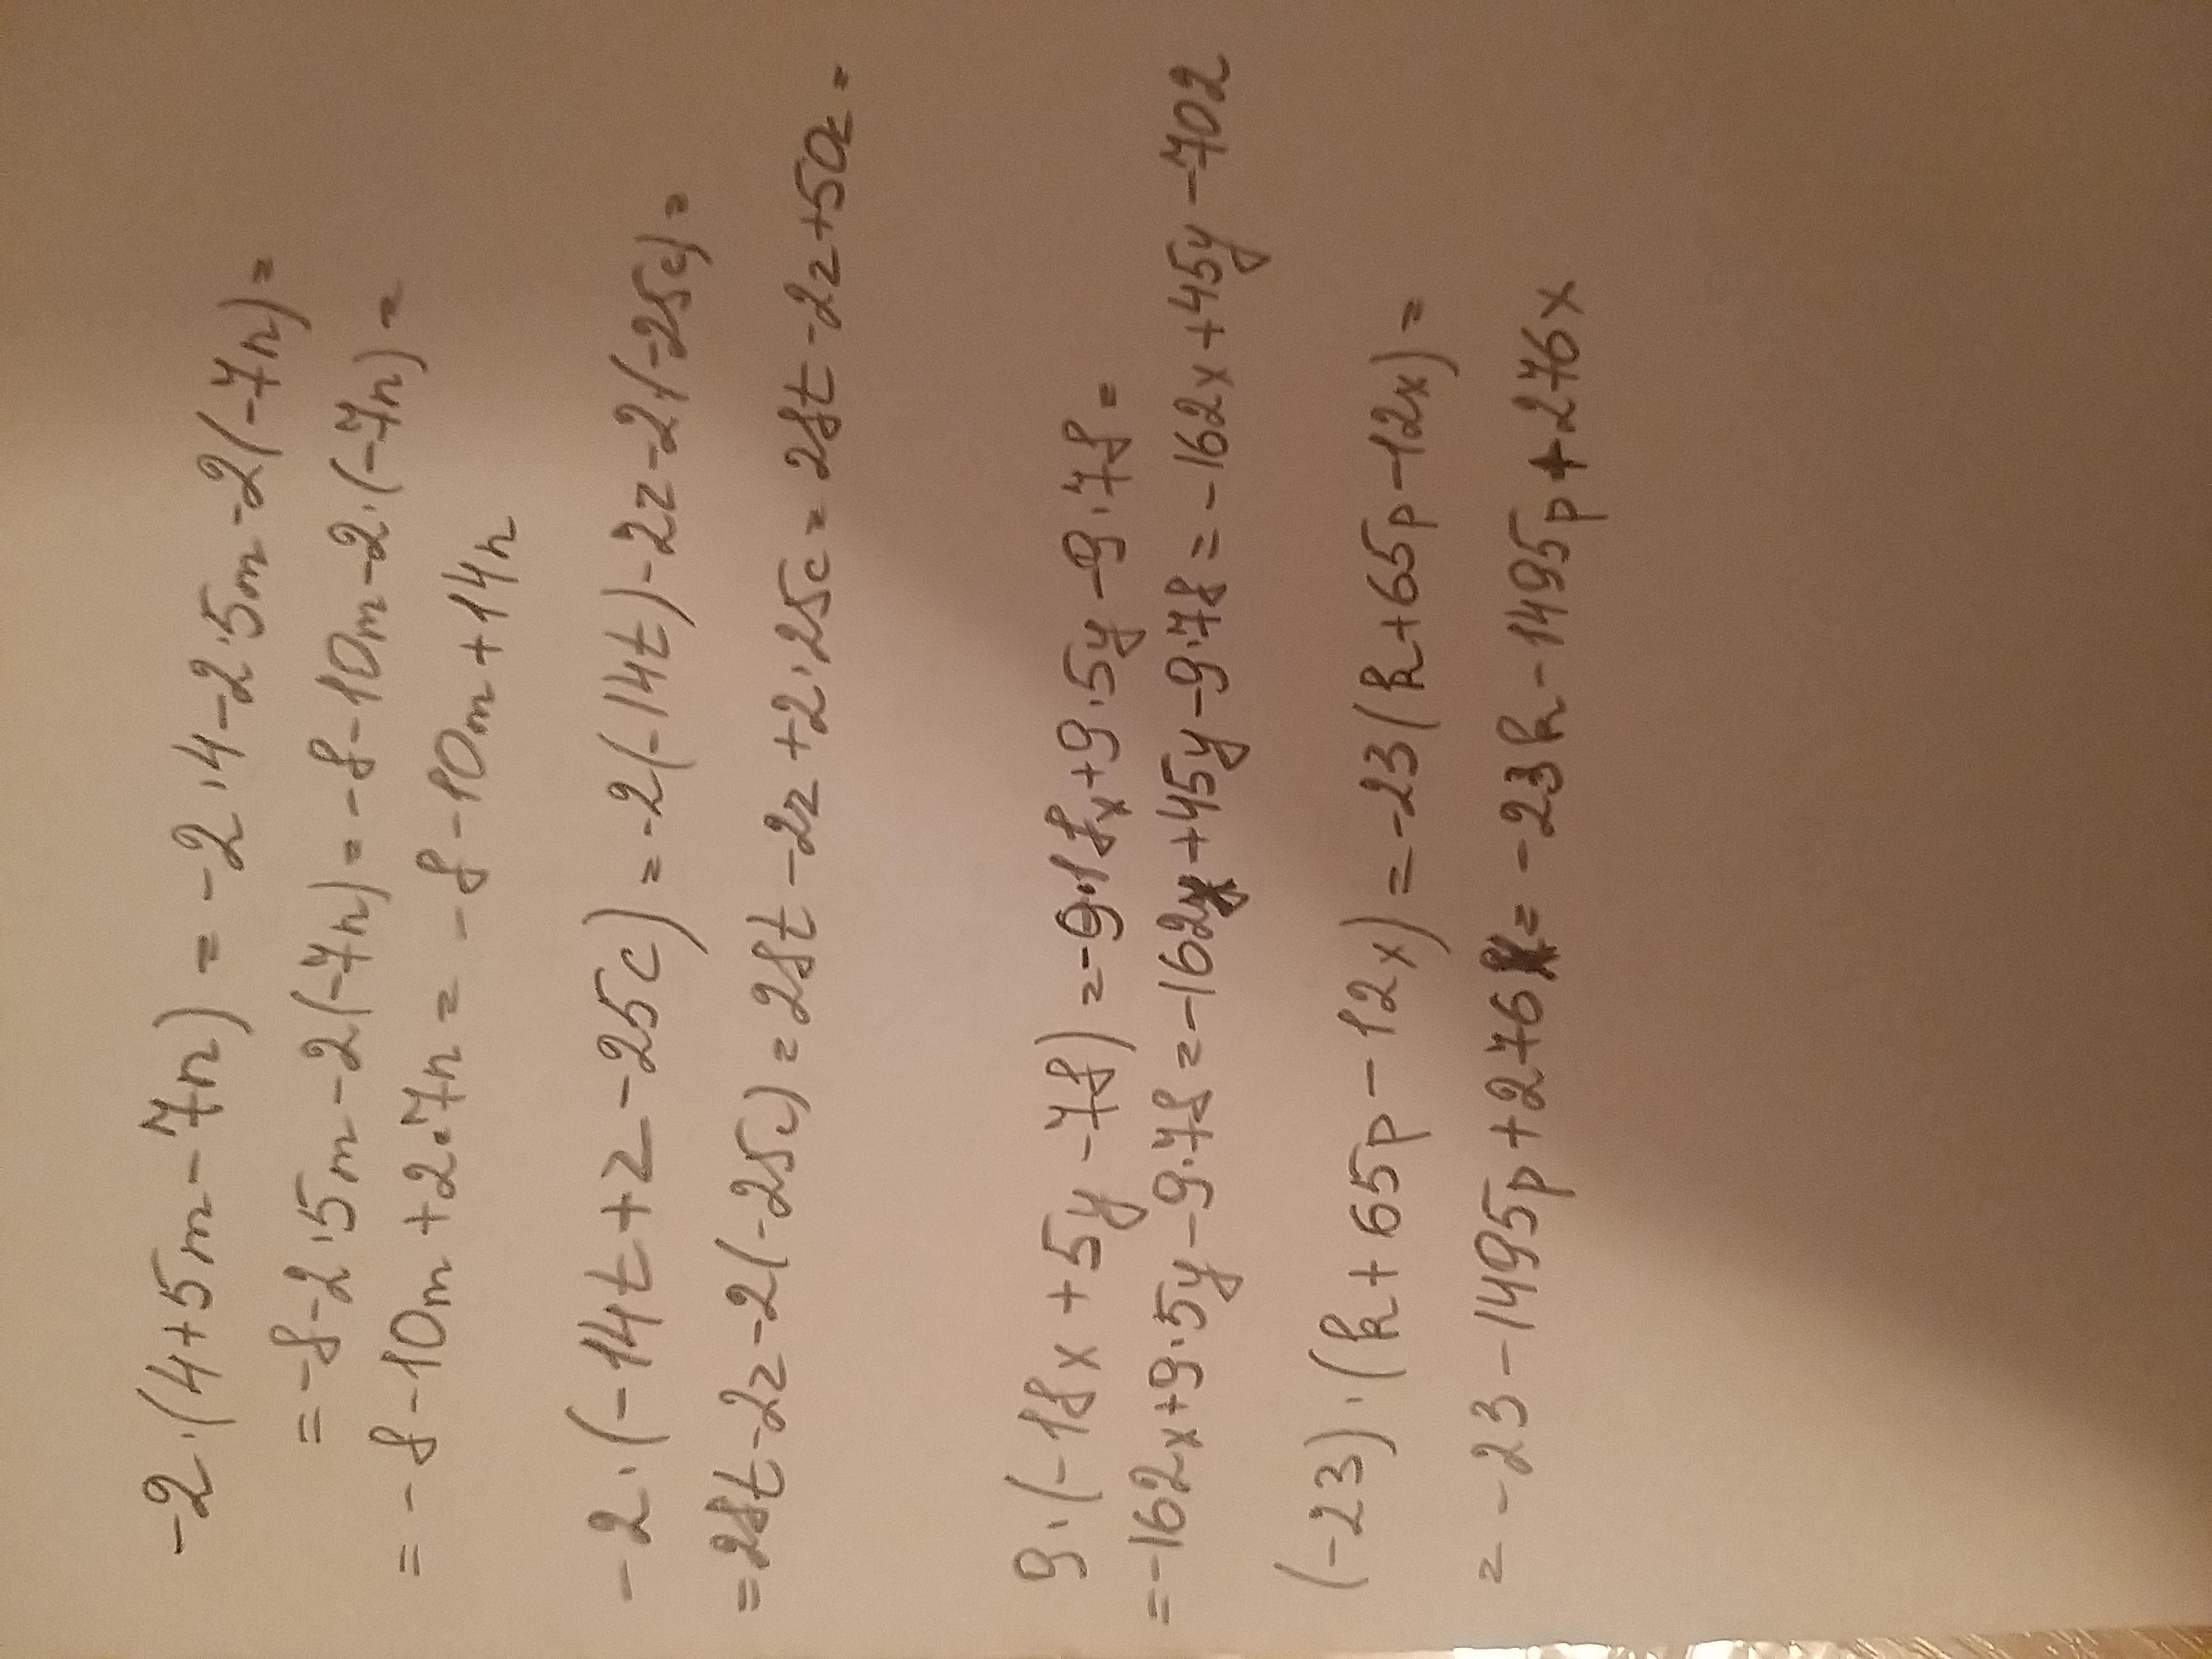 -2·(4+5m-7n) = -2·4-2·5m-2(-7n)=
=-8-2·5m-2(-7n)=-8-10m-2·(-7n)=
=-8-10m+2·7n=-8-10m+14n
-2·(-14t+z-25c)=-2(-14t)-2z-2(-25c)=
=28t-2z-2(-25c)=28t-2z+2·25c=28t-2z+50c=
9·(-18x+5y-78)=-9·18x+9·5y-9·78=
=-162x+9·5y-9·78=-162x+45y-9·78=-162x+45y-702
(-23)·(k+65p-12x)=-23(k+65p-12x)=
=-23-1495p+276x=-23k-1495p+276x